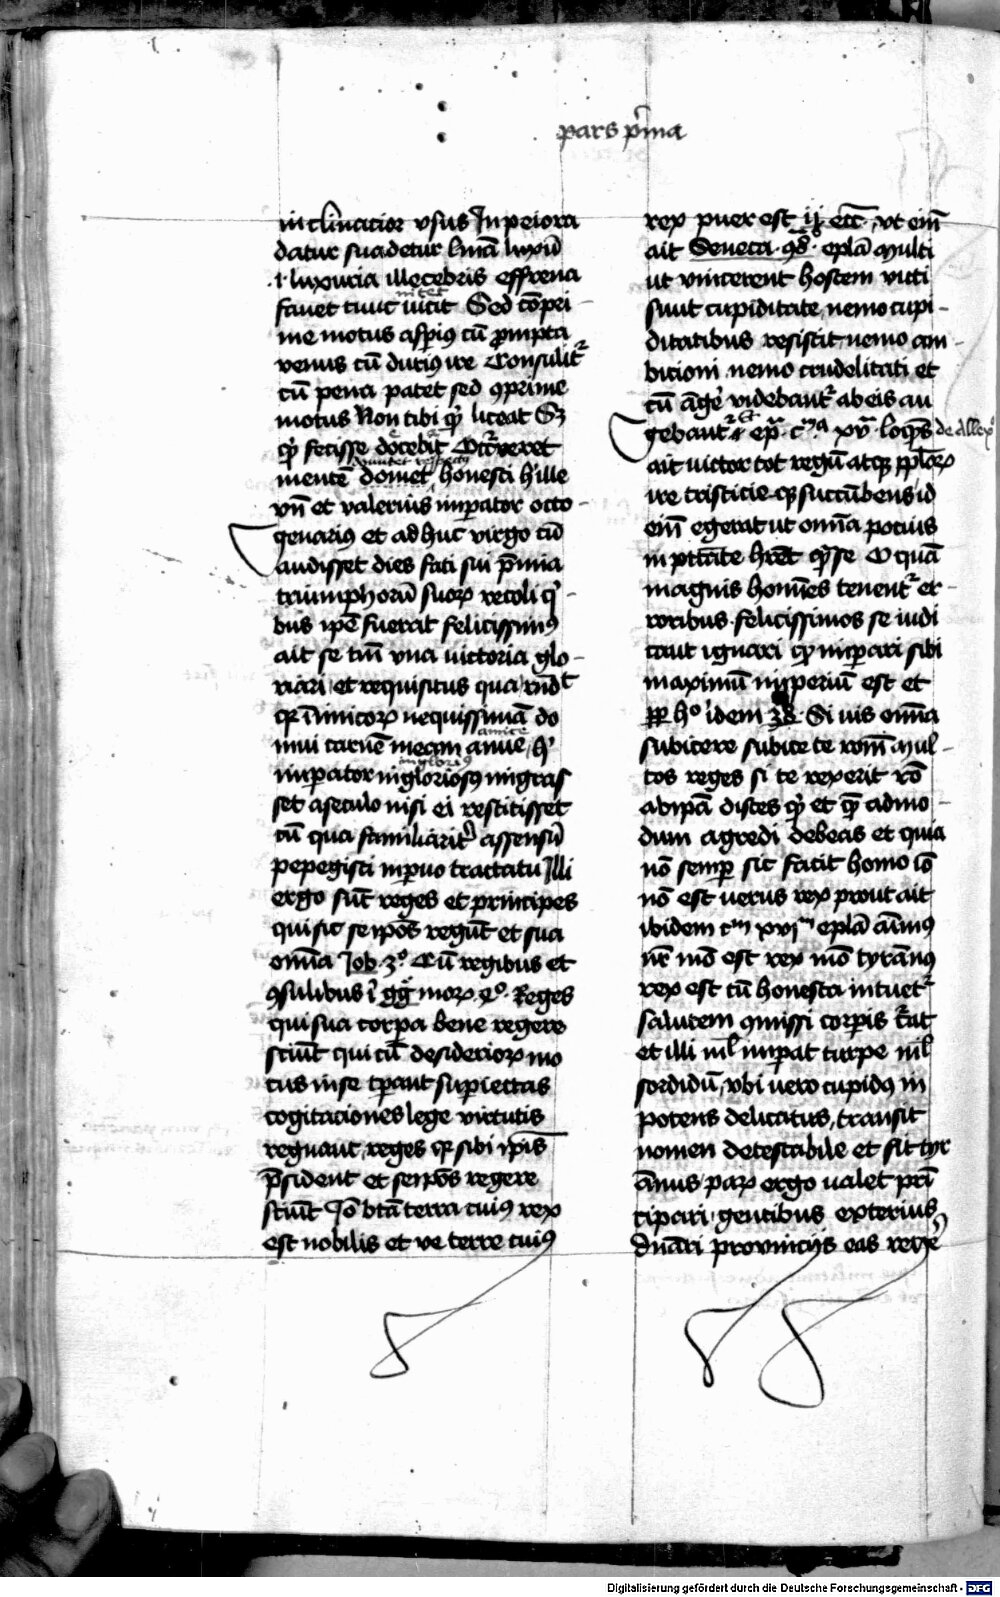 pars p̄ma
inclinacior vsus In peiora
datur suadetur lima luxu
.i. luxuria illecebris effrena
nitet
favet tunc vicit Sed cōpri-
me motus asp̄ius cū prompta
venus cū durius ire Consulit᷑
cū pena patet sed ꝯprime
motus Non tibi qd̄ liceat Sꝫ
qd̄ fecisse docebit
mentē domet honesti hille
vñ et valerius imperator octo-
genarius et adhuc virgo cū
audisset dies fati sui p̄mia
triumphorū suoꝝ recoli qⁱ-
bus ip̄e fuerat felicissimus
ait se tm̄ vna victoria glo-
riari et requisitus qua rn̄dt
qꝫ inimicoꝝ nequissimā do
amice
mui carnē meam
inglorius
imperator ingloriosus migras
set a seculo nisi ei restitisset
cū qua familiarit᷑ assensū
pepegisti in paruo tractatu Illi
ergo sūt reges et principes
qui sic seip̄os regūt et sua
om̄ia Job .3.º Cū regibus et
ꝯsulibus ī gg̅ moꝝ 4º. Reges
qui sua corpora bene regere
sciūt qui cū desiderioꝝ mo
tus in se tp̄ant supiectas
cogitaciones lege virtutis
regnant, reges qꝫ sibi ip̄is
p̄sident et seip̄os regere
sciūt Jō btā terra cuius rex
est nobilis et ve terre cuius
rex puer est ij ecc̄. vt eim̄
ait Seneca . 98 . eplā Multi
ut vincerent hostem victi
sunt cupiditate, nemo cupi-
ditatibus resistit, nemo am-
bicioni nemo crudelitati et
cū āgē videbant᷑ ab eis au
gebant᷑ ep̄a cᵐᵃ xvᵃ loqn̄s de Allexº
ait victor tot regū atqꝫ pp̄loꝝ
ire tristicie qꝫ succūbens id
eim̄ egerat ut om̄ia potius
in ptāte hret qꝫ se O quā
magnis homīes tenent᷑ er-
roribus felicissimos se iudi
cant ignari qꝫ imperari sibi
maximū imperiū est et
ꝓp̄ hº idem 38. Si vis om̄ia
subicere subice te rōm mul-
tos reges si te rexerit rō
ab ip̄a disces qd̄ et qm̄ admo-
dum agredi debeas et quia
nō semp sic facit homo iō
nō est verus rex prout ait
ibidem cᵐ xvjᵐ eplā aīmus
nr̄ mō est rex mō tyrānus
rex est cū honesta intuet᷑
salutem ꝯmissi corp̄is cūat
et illi nil imperat turpe nil
sordidū, vbi vero cupidus in
potens delicatus, transit
nomen detestabile et fit tyr
ānus, paꝝ ergo valet prī
cipari gentibus exterius
dn̄ari provincijs eas rege
Digitalisierung gefördert durch die Deutsche Forschungsgemeinschaft - DFG